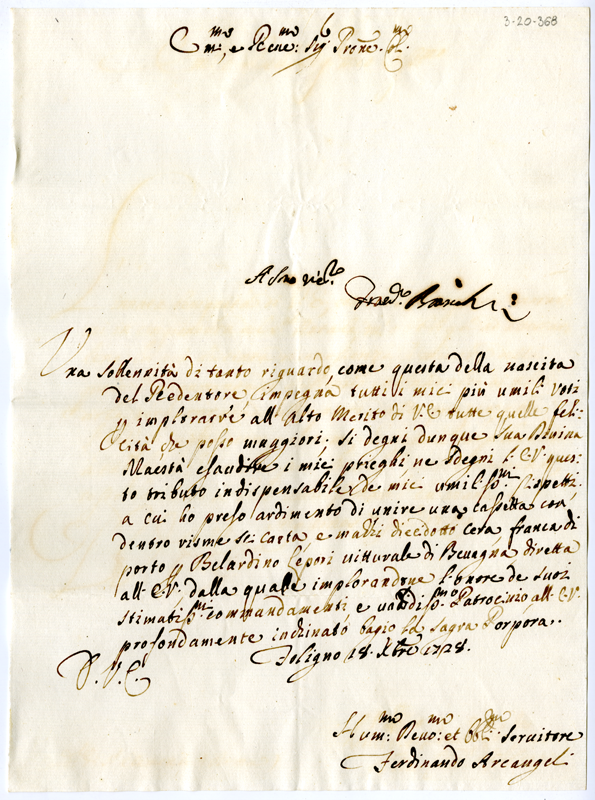 3-20-368
Em:mo, e Reve:mo Sig.r Prone Col:mo
Una sollennità di tanto riguardo come questa della nascita
del Redentore impegna tutti i miei più umili voti
implorarve all'alto Merito di V.E. tutte quelle feli-
cità che posso maggiori; si degni dunque sua Divina
Maestà esaudire i miei prieghi ne sdegni l'E.V. ques-
to tributo indispensabile de miei umilis.mi rispetti
a cui ho preso ardimento di unire una cassetta con
dentro risme sei carta, e mazzi dicedotto cera franca di
porto p Belardino Lepori vitturale di Bevagna diretta
all'E.V. dalla quale implorandone l'onore de suoi
stimatis.mi commandamenti e validis.mo Patrocinio all'E.V.
profondamente inchinato bagio la sagra Porpora.
D. V. E. Foligno 18 Xbre 1728.
Hum:mo Devo:mo et Obbl:mo Servitore
Ferdinando Arcangeli